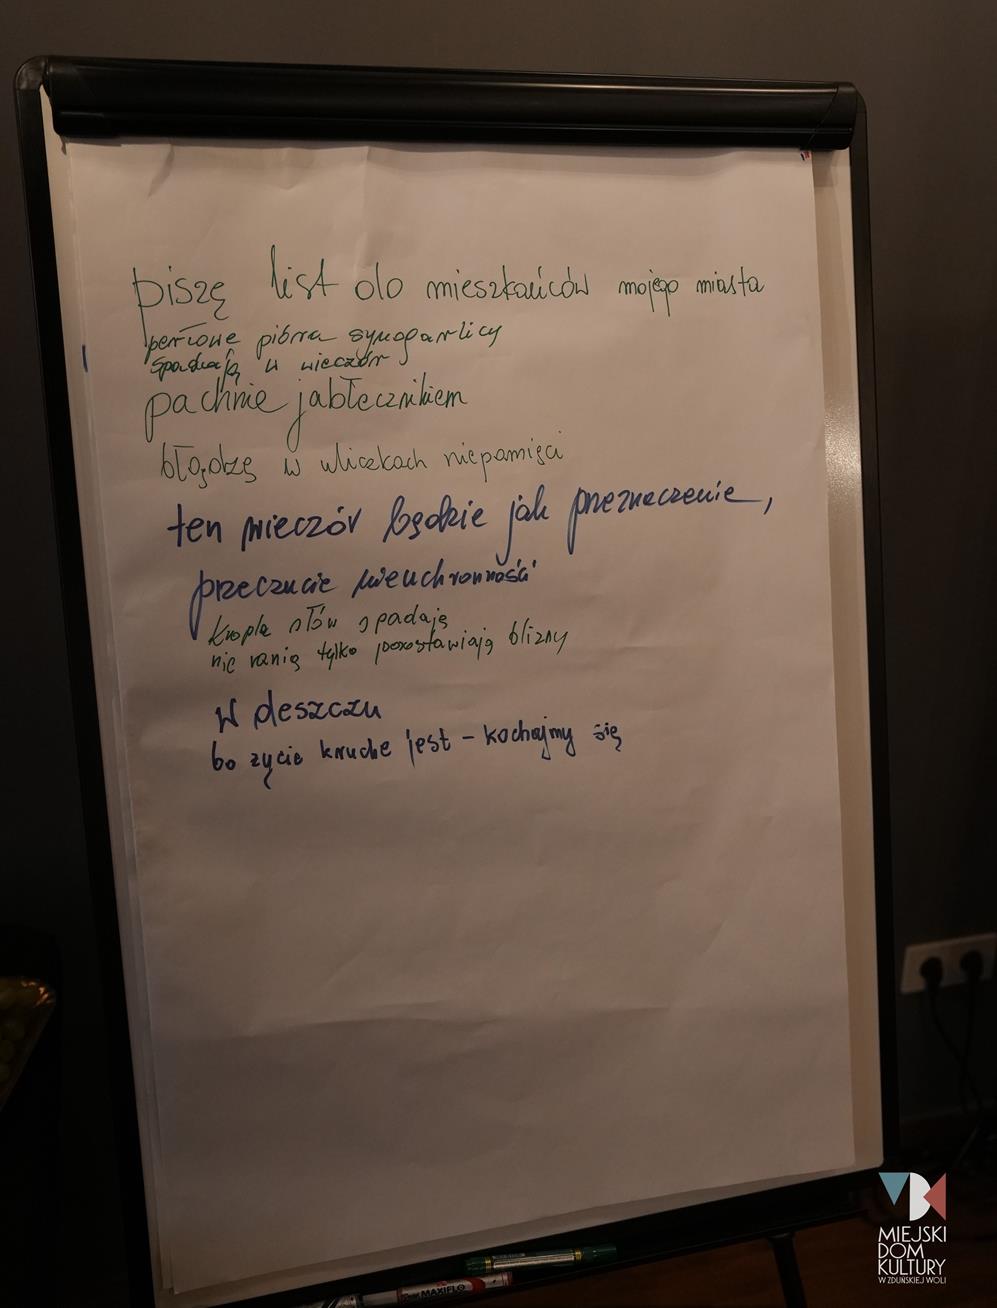 piszę list do mieszkańców mojego miasta
perłowe pióra synogarlicy
spadają w wieczór
pachnie jabłecznikiem
błądzę w uliczkach niepamięci
ten wieczór będzie jak przeznaczenie,
przeczucie nieuchronności
krople słów spadają
nie ranią tylko pozostawiają blizny
w deszczu
bo życie kruche jest – kochajmy się
MAXIFLO
MIEJSKI
DOM
KULTURY
W ZDUŃSKIEJ WOLI